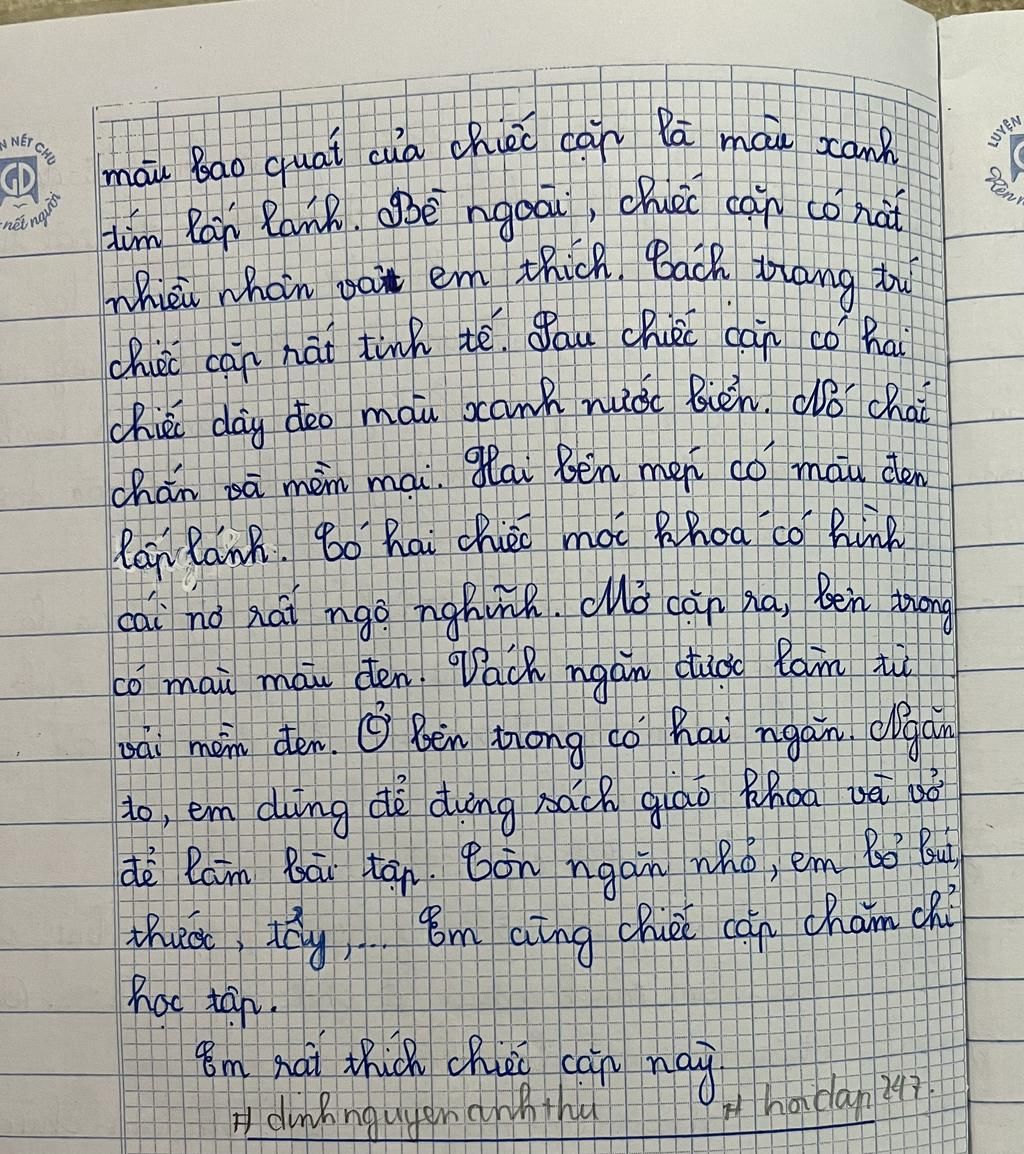 màu bao quát của chiếc cặp là màu xanh
tím lấp lánh. Bề ngoài, chiếc cặp có rất
nhiều nhân vật em thích. Cách trang trí
chiếc cặp rất tinh tế. Sau chiếc cặp có hai
chiếc dây đeo màu xanh nước biển. Nó chắc
chắn và mềm mại. Hai bên mép có màu đen
lấp lánh. Có hai chiếc móc khoá có hình
cái nơ rất ngộ nghĩnh. Mở cặp ra, bên trong
có màu màu đen. Vách ngăn được làm từ
vải mềm đen. Ở bên trong có hai ngăn. Ngăn
to, em dùng để đựng sách giáo khoa và vở
để làm bài tập. Còn ngăn nhỏ, em bỏ bút,
thước, tẩy,... Em cùng chiếc cặp chăm chỉ
học tập.
Em rất thích chiếc cặp này.
# dinhnguyenanhthu # hoidap247.
N NẾT CHỮ
GD
nết người
LUYỆN
Rèn n